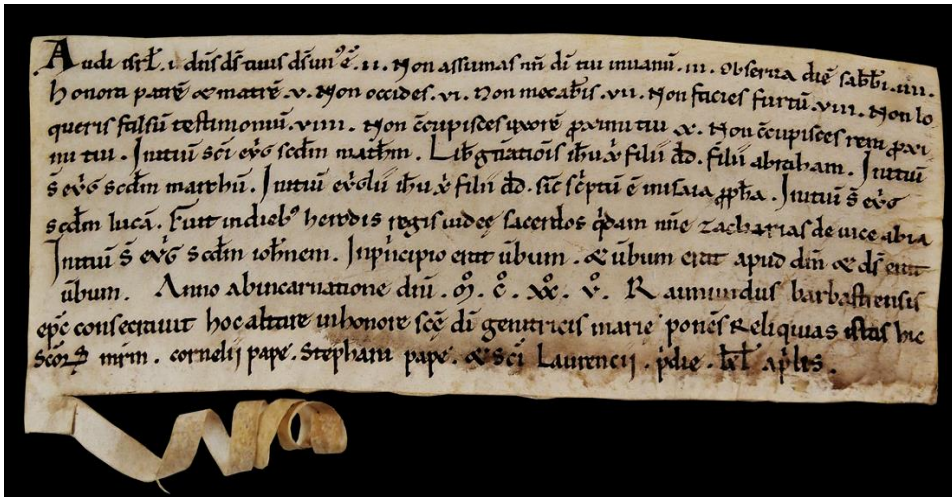 Audi isrl̄. i. dn̄s ds̄ tuus ds̄ un᷒ ē. ii. Non assumas nm̄ dī tui in vanū. iii. Observa diē sabb̄i. iiii.
honora patrē & matrē. v. Non occides. vi. Non mecab̄is. vii. Non facies furtū. viii. Non lo
queris falsū testimoniū. viiii. Non c̄cupisces uxorē proximi tui. x. Non c̄cupisces rem proxi
mi tui. Initiū sc̄i ev̄g scd̄m math̄m. Lib̄ gn̄ationīs ih̄u xp̄i filii dd̄. filii abraham. Initiū
s̄ ev̄g scd̄m marchū. Initiū ev̄glii ih̄u xp̄i filii dī. sic̄ sc̄ptū ē in isaia pp̄ha. Initiū s̄ ev̄g
scd̄m lucā. Fuit in dieb᷒ herodis regis iudeę sacerdos q̇dam nīne zacharias de vice abia
Initiū s̄ ev̄g scd̄m ioh̄nem. In pⁱncipio erat v̄bum. & v̄bum erat apud dm̄ & ds̄ erat
v̄bum. Anno ab incarnatione dn̄i. m̊. c̊. xx̊. v̊. Raimundus barbastrensis
epc̄ consecravit hoc altare in honore scē dī genitricis marie ponēs Reliquias istas hic
Scōꝝ mr̄m. cornelij pape. Stephani pape. & sc̄i Laurencij. pdie. kl̄ ap̄lis.